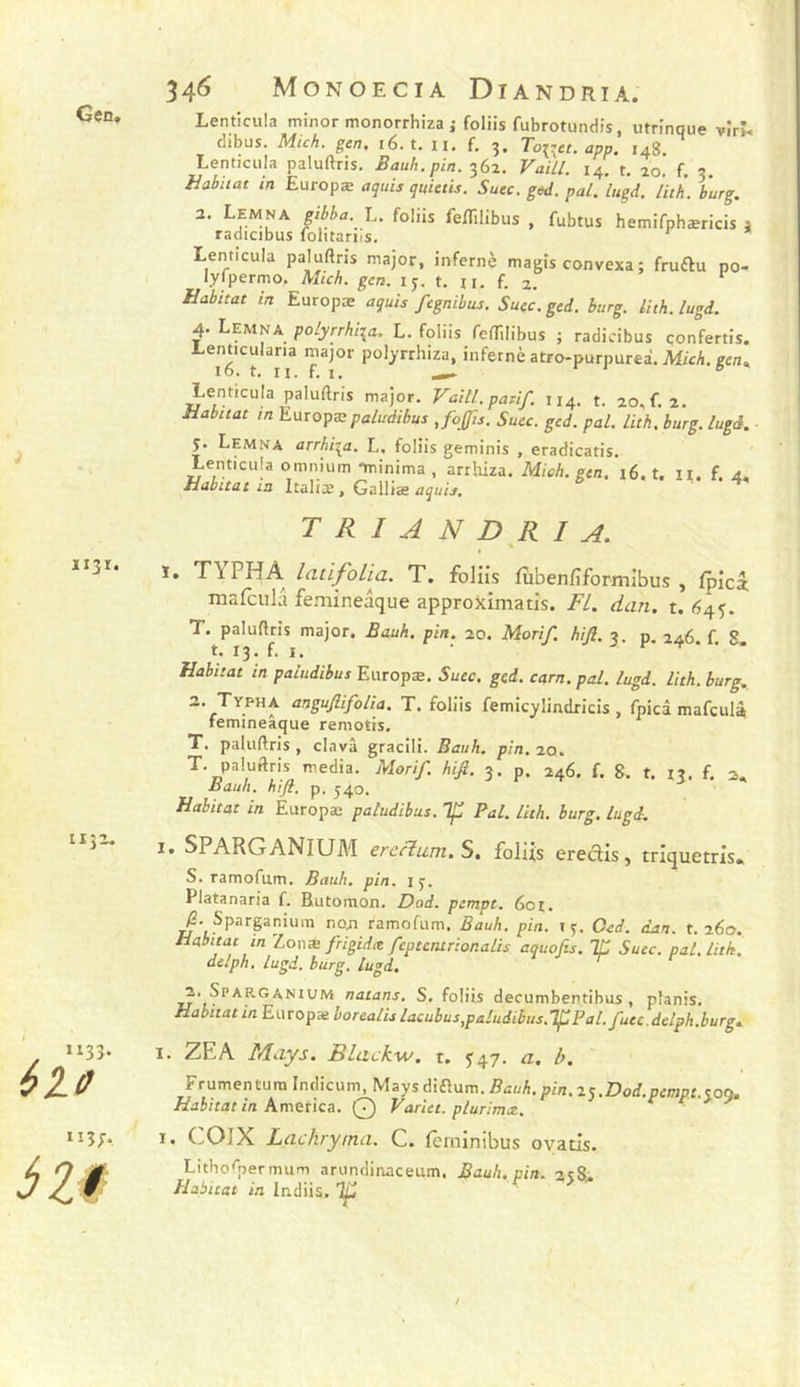 346 MONOECIA DIANDRIA.
Gen.
Lenticula minor monorrhiza ; foliis ſubrotundis, utrinque viri-
dibus. Mich. gen. 16. t. 11. f. 3. Tozzet. app. 148.
Lenticula paluſtris. Bauh. pin. 362. Vaill. 14. t. 20. f. 3.
Habitat in Europæ aquis quietis. Suec. ged. pal. lugd. lith. burg.
2. LEMNA gibba. L. foliis ſeſſilibus , ſubtus hemiſphæricis ;
radicibus ſolitariis.
Lenticula paluſtris major, infernè magis convexa; fructu po-
lyſpermo. Mich. gen. 15. t. 11. f. 2.
Habitat in Europæ aquis ſegnibus. Suec. ged. burg. lith. lugd.
4. LEMNA polyrrhiza. L. foliis ſeſſilibus ; radicibus confertis.
Lenticularia major polyrrhiza, infernè atro-purpurea. Mich. gen.
16. t. 11. f. 1.
Lenticula paluſtris major. Vaill. pariſ. 114. t. 20. f. 2.
Habitat in Europæ paludibus , foſſis. Suec. ged. pal. lith. burg. lugd.
5. LEMNA arrhiza. L. foliis geminis , eradicatis.
Lenticula omnium minima , arrhiza. Mich. gen. 16. t. 11. f. 4.
Habitat in Italiæ, Galliæ aquis.
TRIANDRIA.
1131. 1. TYPHA latifolia. T. foliis ſubenſiformibus , ſpicâ
maſculâ femineâque approximatis. Fl. dan. t. 645.
T. paluſtris major. Bauh. pin. 20. Moriſ. hiſt. 3. p. 246. f. 8.
t. 13. f. 1.
Habitat in paludibus Europæ. Suec. ged. carn. pal. lugd. lith. burg.
2. TYPHA anguſtifolia. T. foliis ſemicylindricis , ſpicâ maſculâ
femineâque remotis.
T. paluſtris , clavâ gracili. Bauh. pin. 20.
T. paluſtris media. Moriſ. hiſt. 3. p. 246. f. 8. t. 13. f. 2.
Bauh. hiſt. p. 540.
Habitat in Europæ paludibus. ♃ Pal. lith. burg. lugd.
1132. 1. SPARGANIUM erectum. S. foliis erectis, triquetris.
S. ramoſum. Bauh. pin. 15.
Platanaria ſ. Butomon. Dod. pempt. 601.
β. Sparganium non ramoſum. Bauh. pin. 15. Oed. dan. t. 260.
Habitat in Zonæ frigidæ ſeptentrionalis aquoſis. ♃ Suec. pal. lith.
delph. lugd. burg. lugd.
2. SPARGANIUM natans. S. foliis decumbentibus , planis.
Habitat in Europæ borealis lacubus, paludibus. ♃ Pal. ſuec. delph. burg.
1133. 1. ZEA Mays. Blackw. t. 547. a. b.
620
Frumentum Indicum, Mays dictum. Bauh. pin. 25. Dod. pempt. 509.
Habitat in America. ☉ Variet. plurimæ.
1135. 1. COIX Lachryma. C. ſeminibus ovatis.
521
Lithoſpermum arundinaceum. Bauh. pin. 258.
Habitat in Indiis. ♃